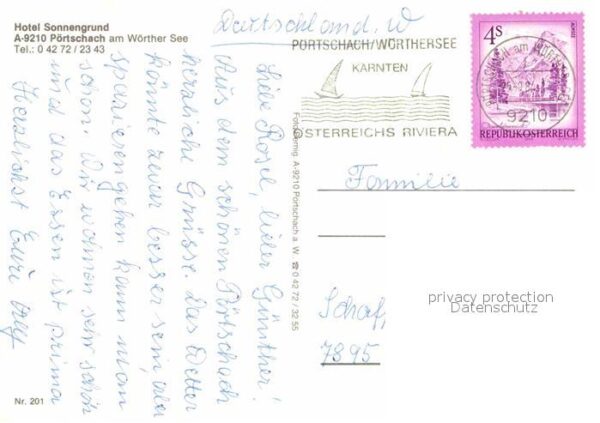 Hotel Sonnengrund
A-9210 Pörtschach am Wörther See
Tel.: 0 42 72 / 23 43
Liebe Rosel, lieber Günther!
Aus dem schönen Pörtschach
herzliche Grüsse. Das Wetter
könnte zwar besser sein, aber
spazierengehen kann man
schon. Wir wohnen sehr schön
und das Essen ist prima
Herzlichst Eure
Nr. 201
A-9210 Pörtschach a. W. ☎ 0 42 72 / 32 55
PÖRTSCHACH/WÖRTHERSEE
KÄRNTEN
ÖSTERREICHS RIVIERA
4S
9210
REPUBLIK ÖSTERREICH
Familie
privacy protection
Datenschutz
7895